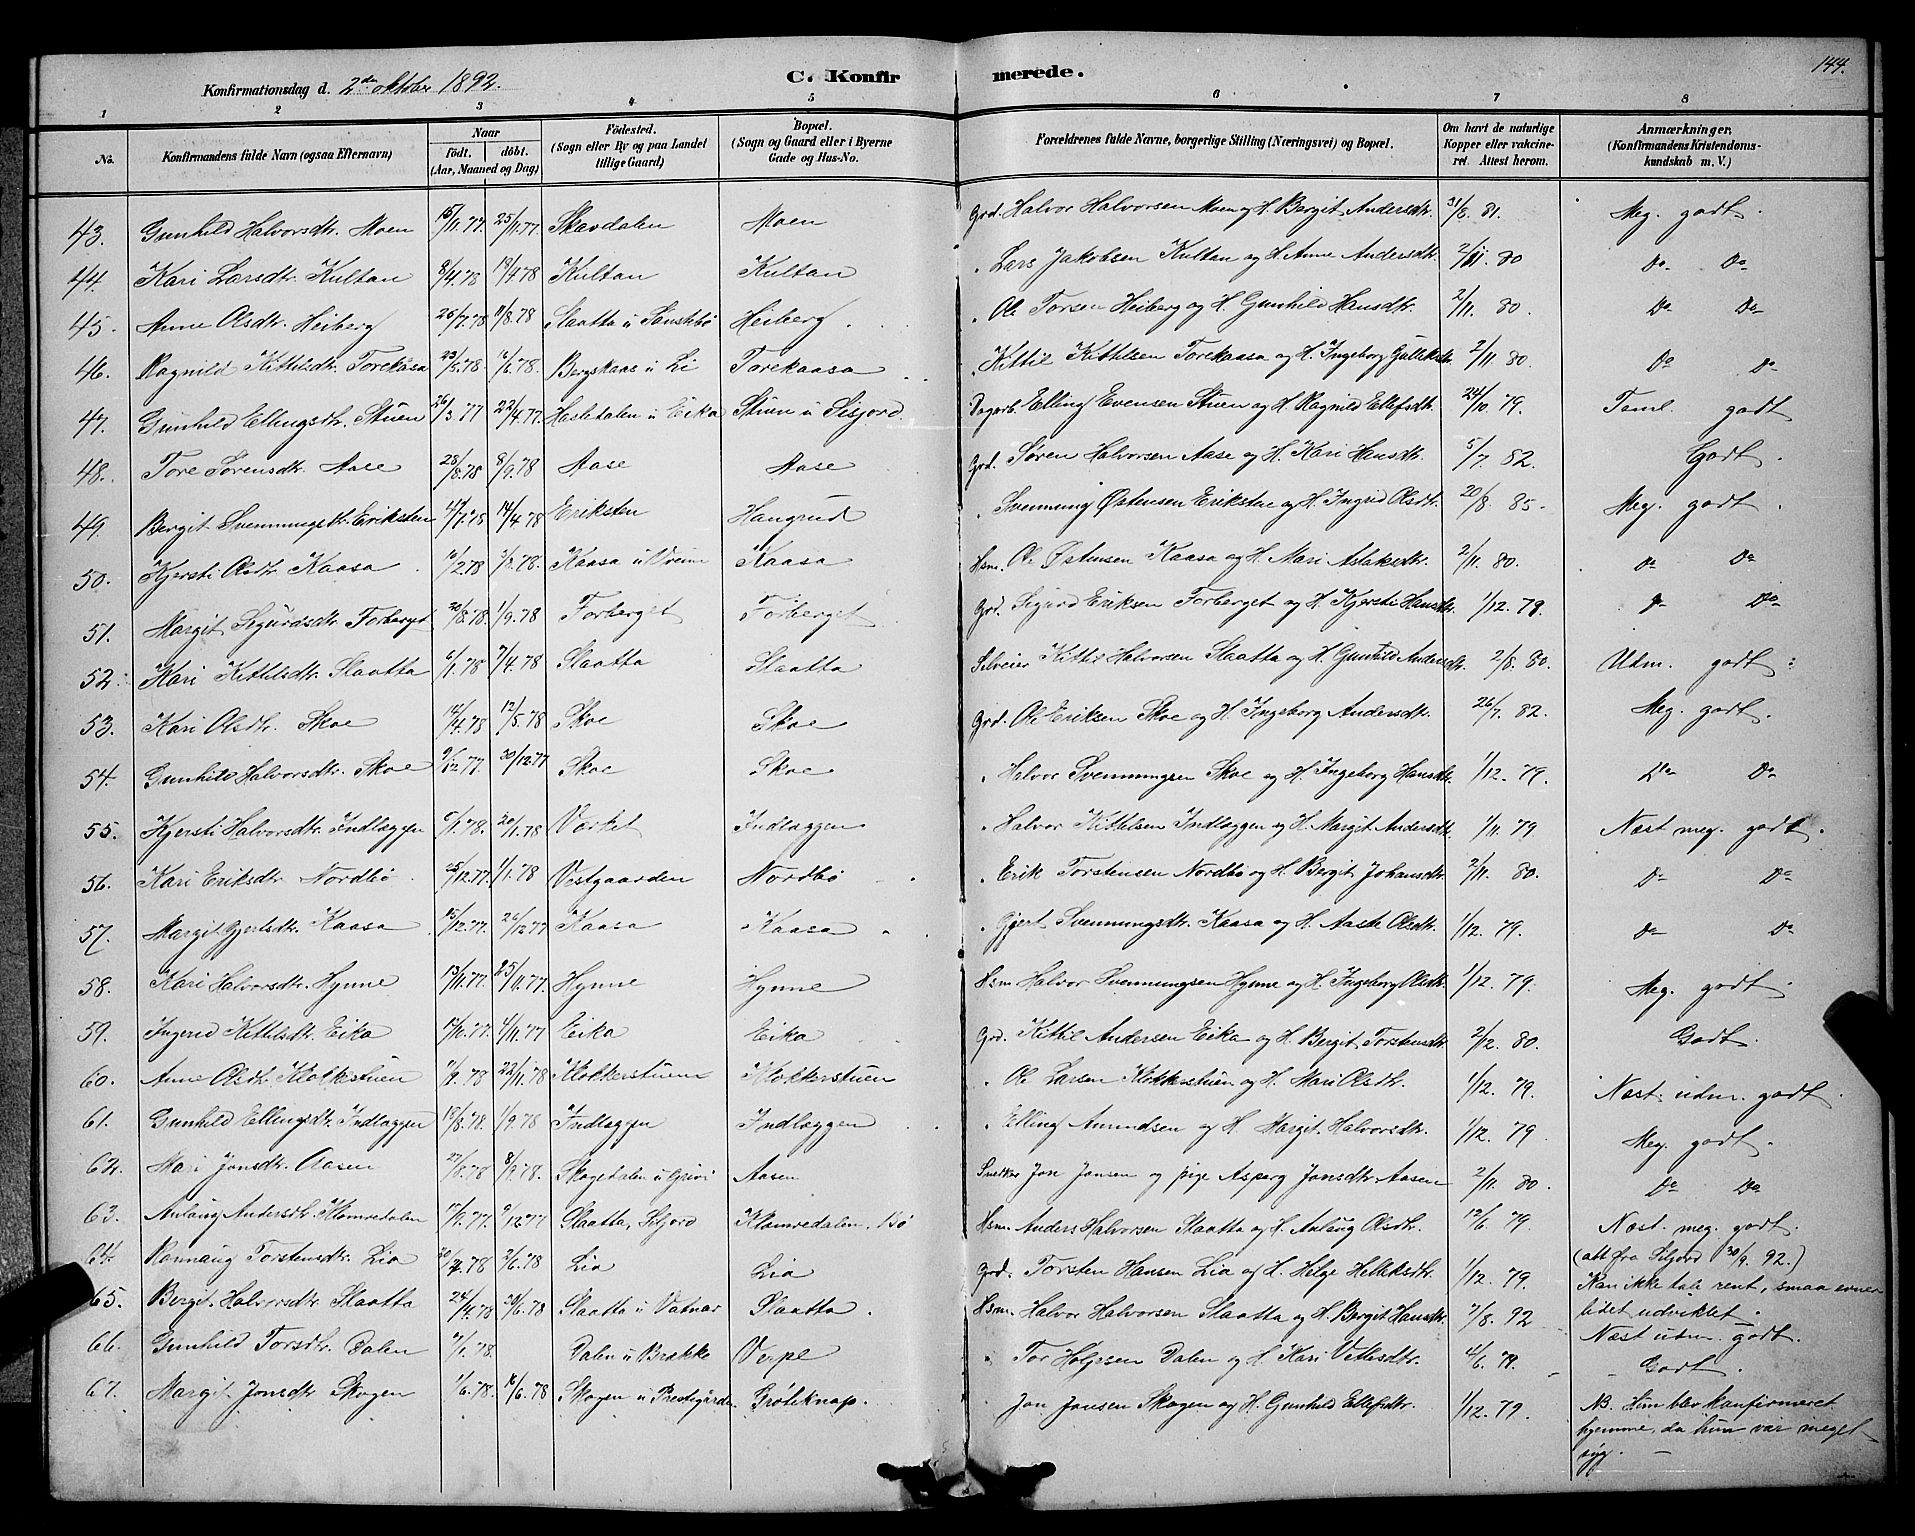 144.
Konfirmationsdag d. 2den Oktober 1892.
C. Konfirmerede.
1 2 3 4 5 6 7 8
No. Konfirmandens fulde Navn (ogsaa Efternavn) Naar födt, döbt. (Aar, Maaned og Dag) Födested. (Sogn eller By og paa Landet tillige Gaard) Bopæl. (Sogn og Gaard eller i Byerne Gade og Hus-No. Forældrenes fulde Navne, borgerlige Stilling (Næringsvei) og Bopæl. Om havt de naturlige Kopper eller vakcineret. Attest herom. Anmærkninger. (Konfirmandens Kristendomskundskab m. V.)
43. Gunhild Halvorsdtr. Moen 15/11.77 25/11.77. Skavdalen Moen Grd. Halvor Halvorsen Moen og H. Bergit Andersdtr. 31/8. 81. Meg. godt.
44. Kari Larsdtr. Kultan 8/4.78 19/4.78 Kultan Kultan " Lars Jakobsen Kultan og H. Anne Andersdtr. 2/11. 80 Do Do
45. Anne Olsdtr. Heiberg 26/7.78 11/8.78 Slaatta u Heiberg " Ole Torsen Heiberg og H. Gunhild Hansdtr. 2/11. 80. Do Do
46. Ragnild Kittilsdtr. Torekåsa 23/5.78 16/6.78. Bergskaas u Li Torekaasa " Kittil Kittilsen Torekaasa og H. Ingeborg Gulliksdtr. 2/11. 80. Do Do
47. Gunhild Ellingsdtr. Stuen 26/3.77 22/4.77. Hasledalen u Eika Stuen u Sisjord. Dagarb. Elling Evensen Stuen og H. Ragnild Ellefsdtr. 24/10. 79. Taml. godt
48. Tore Sörensdtr. Aase 28/8.78 8/9.78 Aase Aase Grd. Sören Halvorsen Aase og H. Kari Hansdtr. 5/7. 82. Godt.
49. Bergit Svenningsdtr. Eriksten 14/4.78 Eriksten Haugrud " Svenning Østensen Erikstne og H. Ingrid Olsdtr. 20/8. 85. Meg. godt.
50. Kjersti Olsdtr. Kaasa 10/2.78 3/3.78. Kaasa u Vreim Kaasa Hsm. Ole Østensen Kaasa og H. Mari Aslaksdtr. 2/11. 80. Do Do
51. Margit Sigurdsdtr. Forberget 20/8.78. 1/9.78 Forberget Forberget Grd. Sigurd Eriksen Forberget og H. Kjersti Hansdtr. 1/12. 79. Do Do
52. Mari Kittilsdtr. Slaatta 6/1.78 7/4.78 Slaatta Slaatta Selveier Kittil Halvorsen Slaatta og H. Gunhild Andersdtr. 2/8. 80. Udm. godt.
53. Kari Olsdtr. Skoe 14/4.78 12/5.78 Skoe Skoe Grd. Ole Eriksen Skoe og H. Ingeborg Andersdtr. 26/7. 82. Meg. godt.
54. Gunhild Halvorsdtr. Skoe 9/12.77. 30/12.77 Skoe Skoe " Halvor Svenningsen Skoe og H. Ingeborg Hansdtr. 1/12. 79. Do Do
55. Kjersti Halvorsdtr. Indlæggen 6/1.78. 20/1.78 Verket Indlæggen " Halvor Kittilsen Indlæggen og H. Margit Andersdtr. 1/11. 79 Næst meg. godt.
56. Kari Eriksdtr. Nordbö 25/12.77. 1/1.78 Vestgaarden Nordbö " Erik Torstensen Nordbö og H. Bergit Johansdtr. 2/11. 80. Do Do
57. Margit Gjertsdtr. Kaasa 15/12.77. 26/12.77 Kaasa Kaasa " Gjert Svenningsdtr. Kaasa og H. Aaste Olsdtr. 1/12. 79. Do Do
58. Kari Halvorsdtr. Hynne 13/11.77. 25/11.77. Hynne Hynne Hsm Halvor Svenningsen Hynne og H. Ingeborg Olsdtr. 1/12. 79. Meg. godt.
59. Ingerid Kittilsdtr. Eika 4/11.77 Eika Eika Grd. Kittil Andersen Eika og H. Bergit Torstensdtr. 2/12. 80. Godt.
60. Anne Olsdtr. Klokkerstuen 22/11.78 Klokkerstuen Klokkerstuen " Ole Larsen Klokkerstuen og H. Mari Olsdtr. 1/12. 79. Næst udm. godt.
61. Gunhild Ellingsdtr. Indlæggen 18/8.78. 1/9.78 Indlæggen Indlæggen " Elling Amundsen og H. Margit Halvorsdtr. 1/12. 79. Meg. godt.
62. Mari Jonsdtr. Aasen 27/8.78 8/9.78. Skogedalen u Grivi Aasen Snedker Jon Jonsen og pige Aspærg Jonsdtr. Aasen 2/11. 80. Do Do
63. Anlaug Andersdtr. Klomredalen 9/12.77 Slaatta, Seljord Klomredalen. Bö Hsm. Anders Halvorsen Slaatta og H. Anlaug Olsdtr. 12/6. 79. Næst. meg. godt.
(att fra Seljord 30/9. 92.)
64. Ronnaug Torstensdtr. Lia 2/6.78 Lia Lia Grd. Torsten Hansen Lia og H. Helge Helleksdtr. 1/12. 79. Kan ikke tale rent, smaa evner lidet udviklet.
65. Bergit Halvorsdtr. Slaatta 24/4.78 20/6.78 Slaatta u Vatnar Slaatta. Hsm. Halvor Halvorsen Slaatta og H. Bergit Hansdtr. 7/8. 92 Næst udm. godt.
66. Gunhild Torsdtr. Dalen Dalen u Brække Verpe " Tor Holjesen Dalen og H. Kari Vetlesdtr. 4/6. 79. Godt.
67. Margit Jonsdtr. Skogen 1/6.78. 16/6.78 Skogen u Prestegården Grötiknap. Jon Jonsen Skogen og H. Gunhild Ellefsdtr. 1/12. 79. NB. Hun blev konfirmeret
hjemme, da hun var meget
syg.